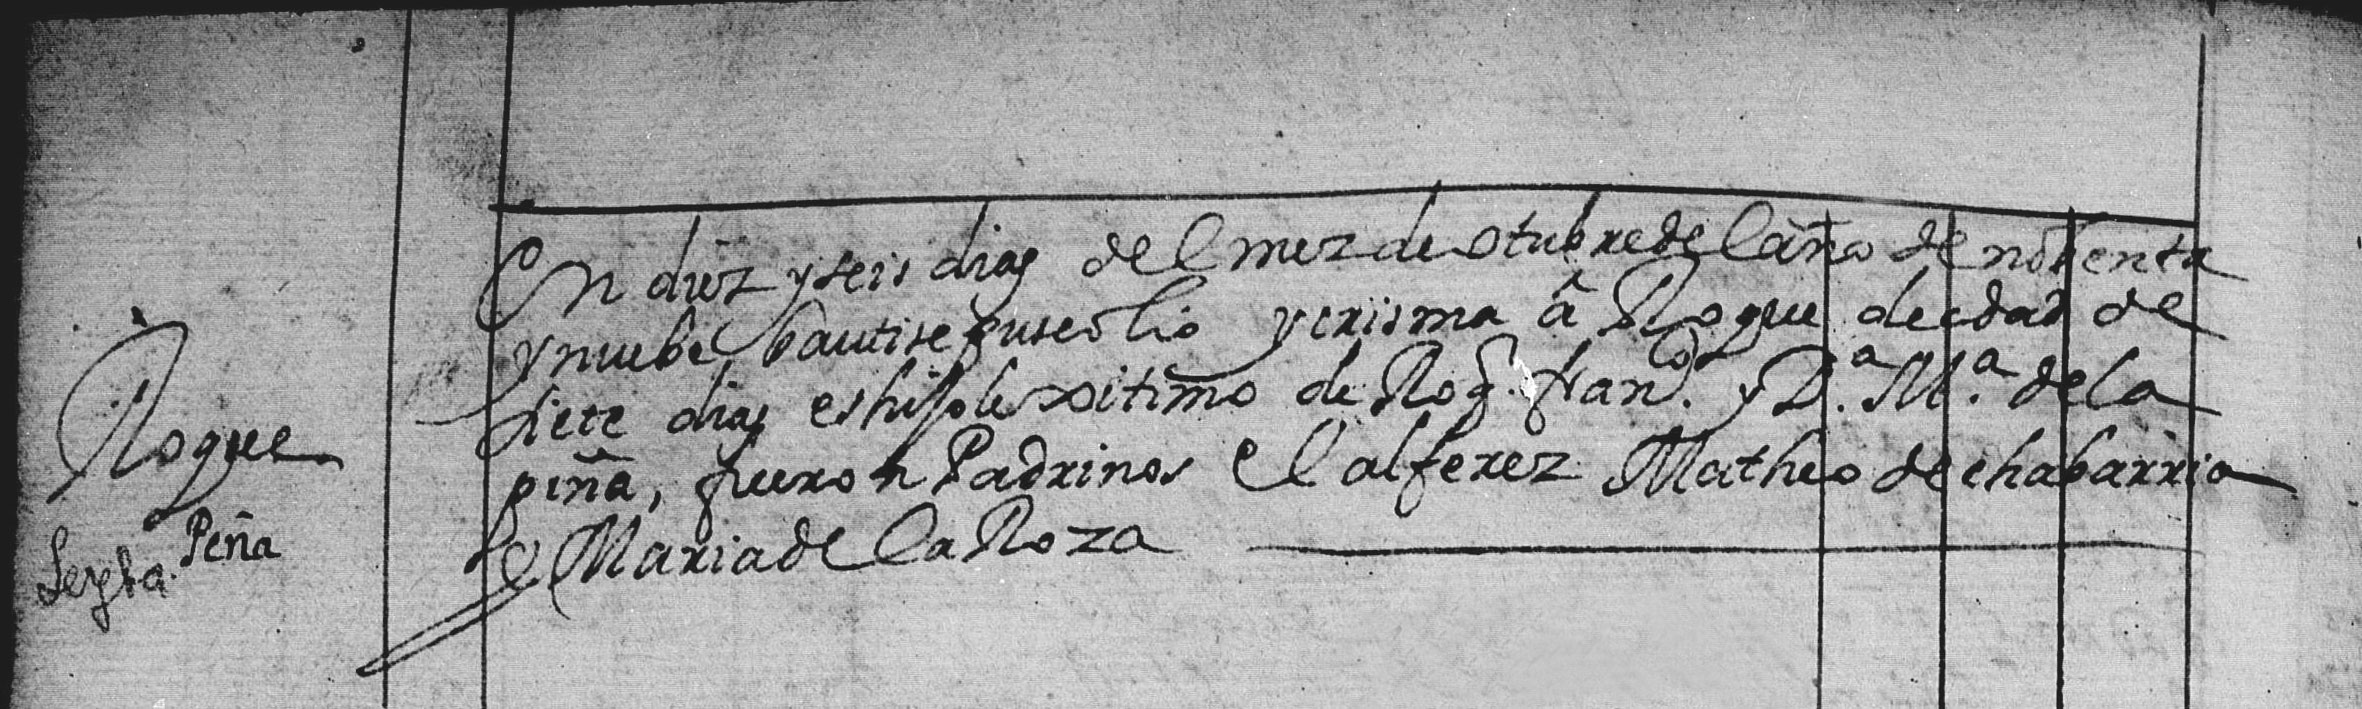 En diez y seis dias del mez de otubre del año de nobenta
y nuebe bautise puse olio y crisma â Roque de edad de
siete dias es hijo lexitimo de Roq. Franco. y Da. Ma. de la
piña, fueron Padrinos el alferez Matheo de chabarria
y Maria de la Roza
Roque
Leyba. Peña